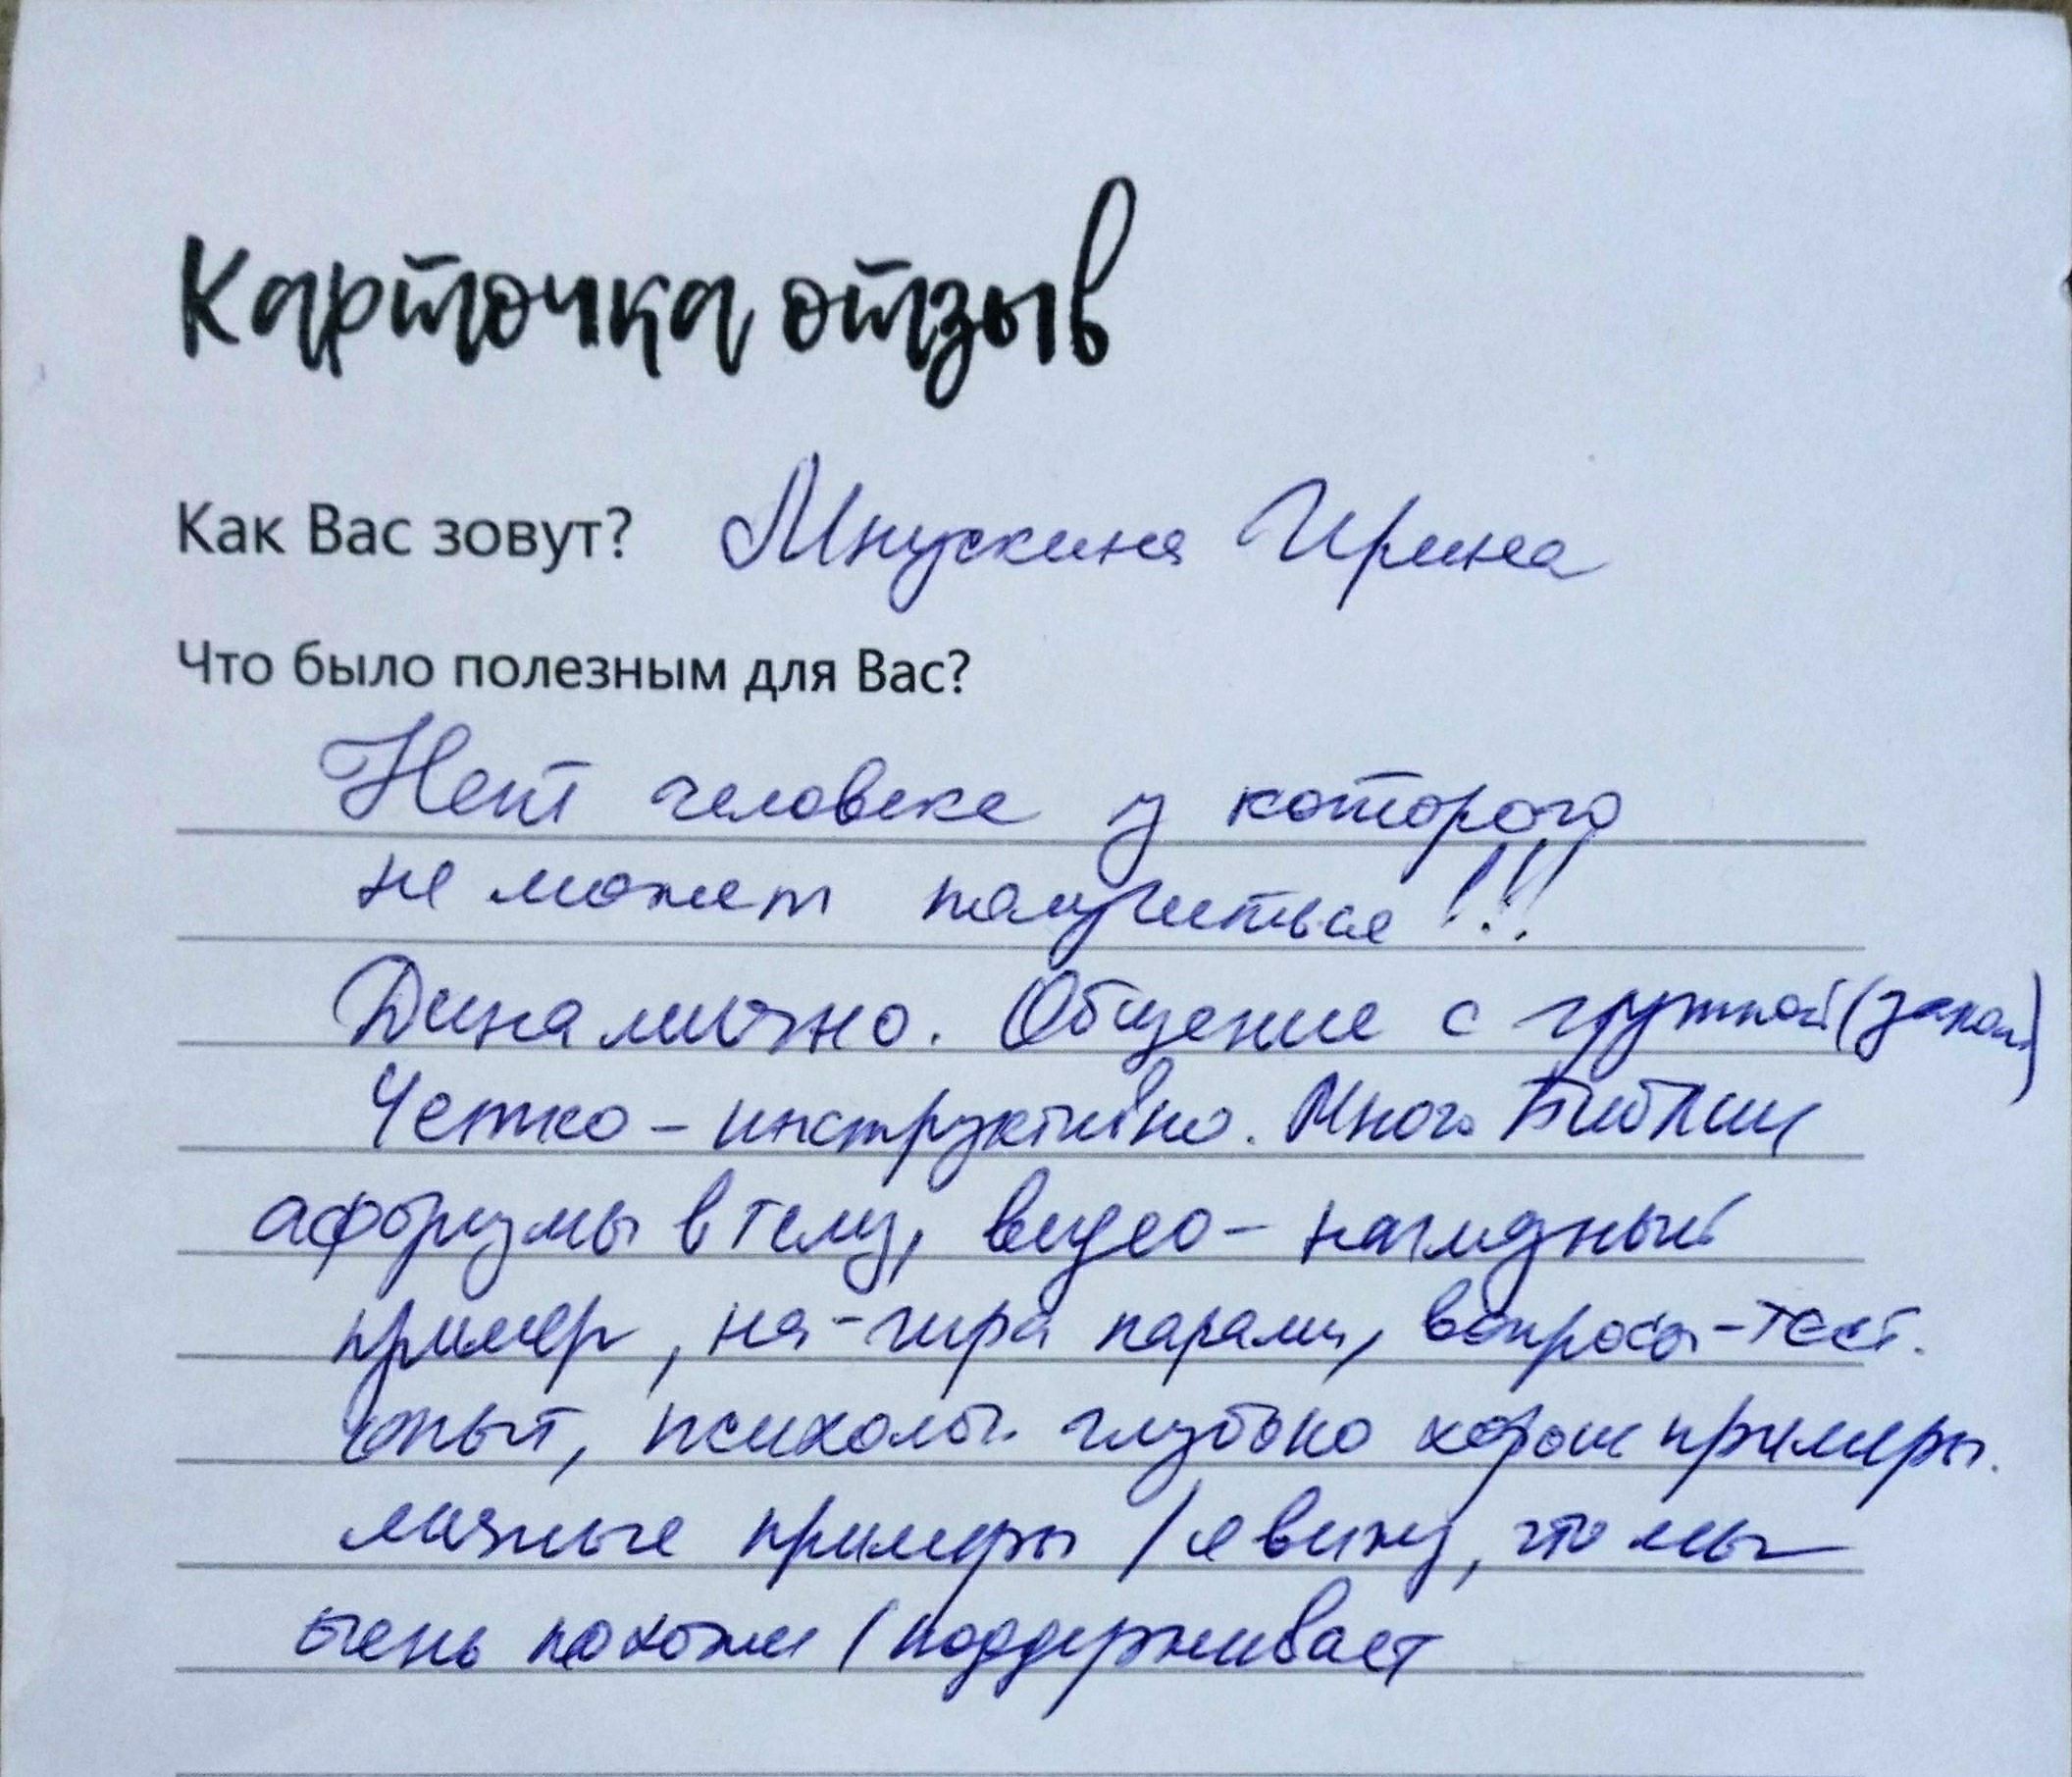 Карточка отзыв
Как Вас зовут? Мнускина Ирина
Что было полезным для Вас?
Нет человека у которого
не может получиться!!!
Динамично. Общение с группой (заком)
Четко – инструктивно. Много Библии
афоризмы в тему, видео – наглядный
пример, игра парами, вопросы – тест.
опыт, психолог. глубоко хорош примеры.
личные примеры / я вижу, что мы
очень похожи / поддерживает